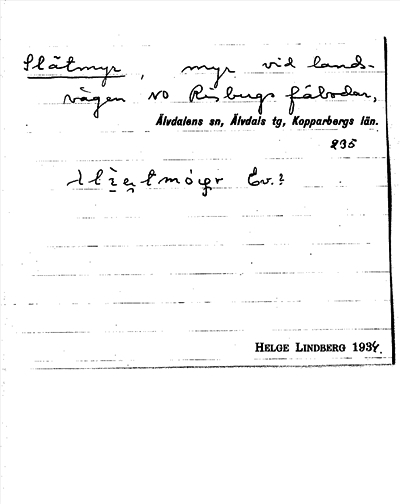 Slåtmyr, myr vid lands-
vägen NO Risbergs fäbodar,
Älvdalens sn, Älvdals tg, Kopparbergs län.
235
Ev.:
HELGE LINDBERG 1934.